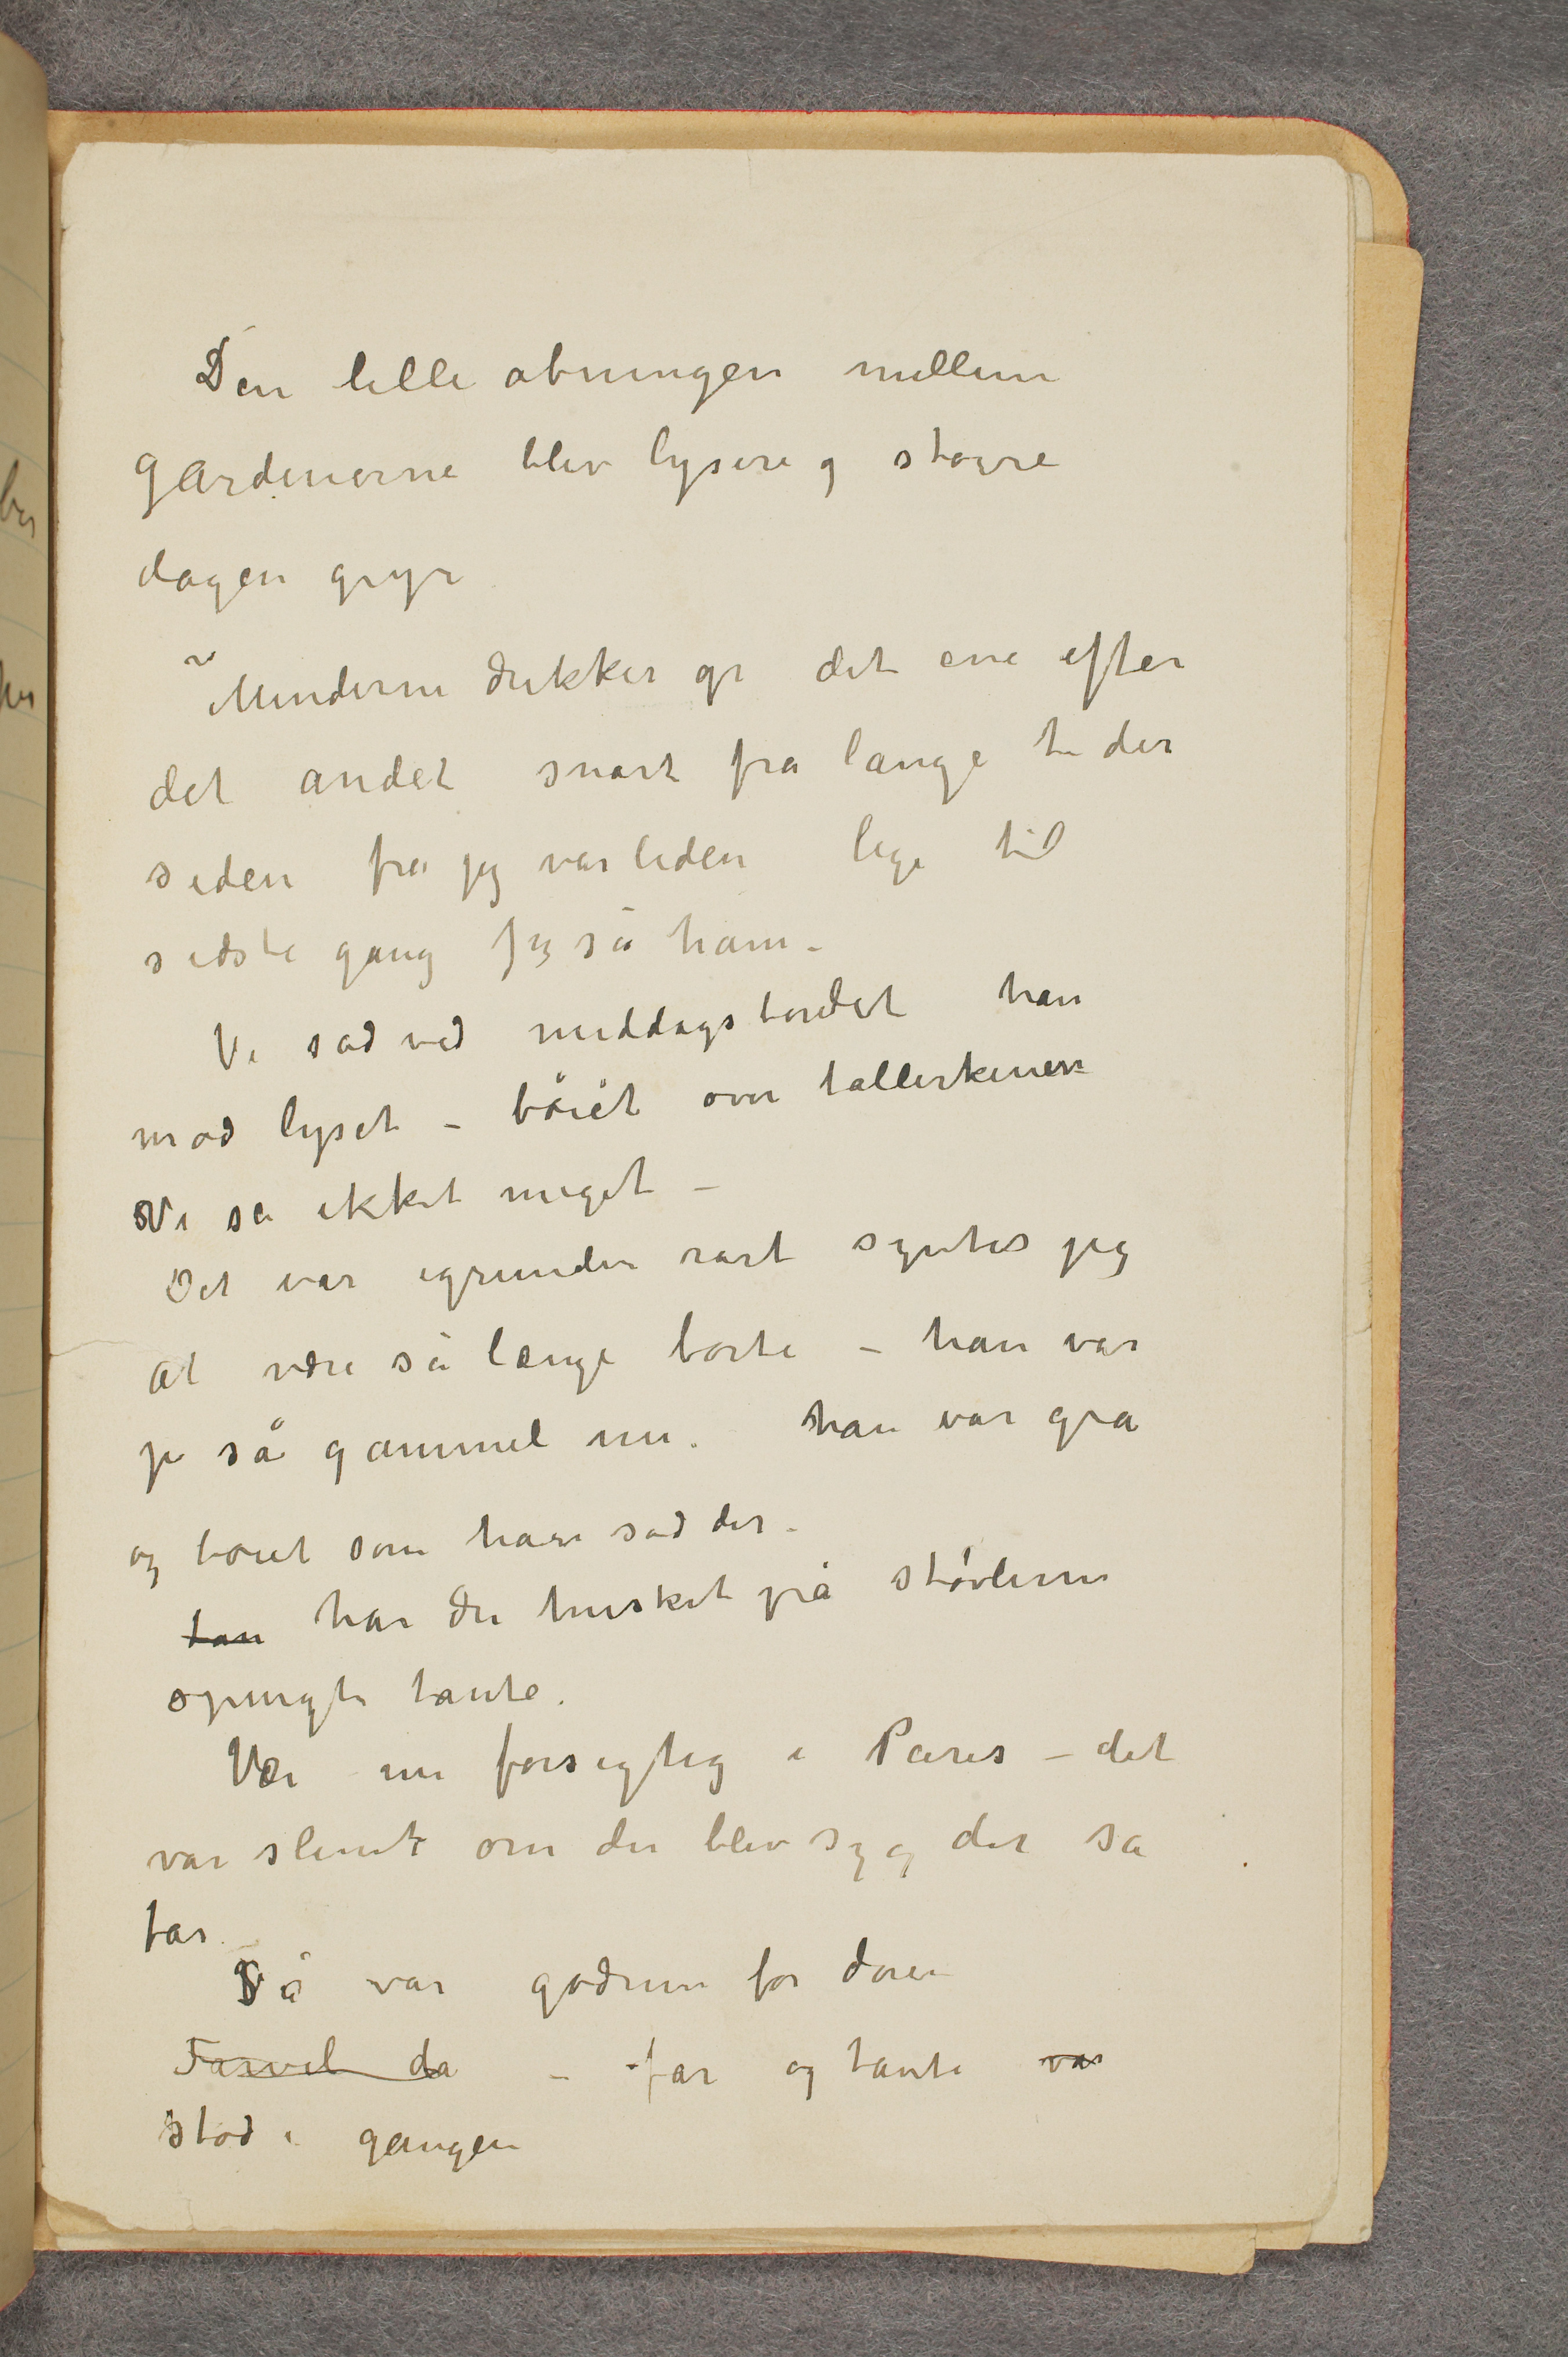 Den lille abningen mellem
gardenerne blev lysere og støvre
dagen gryr
Minderne dukker op det ene efter
det andet snart fra lange tider
siden fra jeg var liden lige til
sidste gang Jeg så ham –
Vi sad ved middagsbordet han
mod lyset – böiet over tallerkenen
Vi sa ikket meget –
Det var igrunden rart syntes jeg
at være så længe borte – han var
jo så gammel nu. han var gra
og boiet som han sad der –
tan har du husket på støvlerne
spurgte tante.
Vær nu forsigtig i Paris – det
var slemt om du blev syg der sa
far.
Så var godrum for doren
Farvel da – far og tante var
stod i gangen